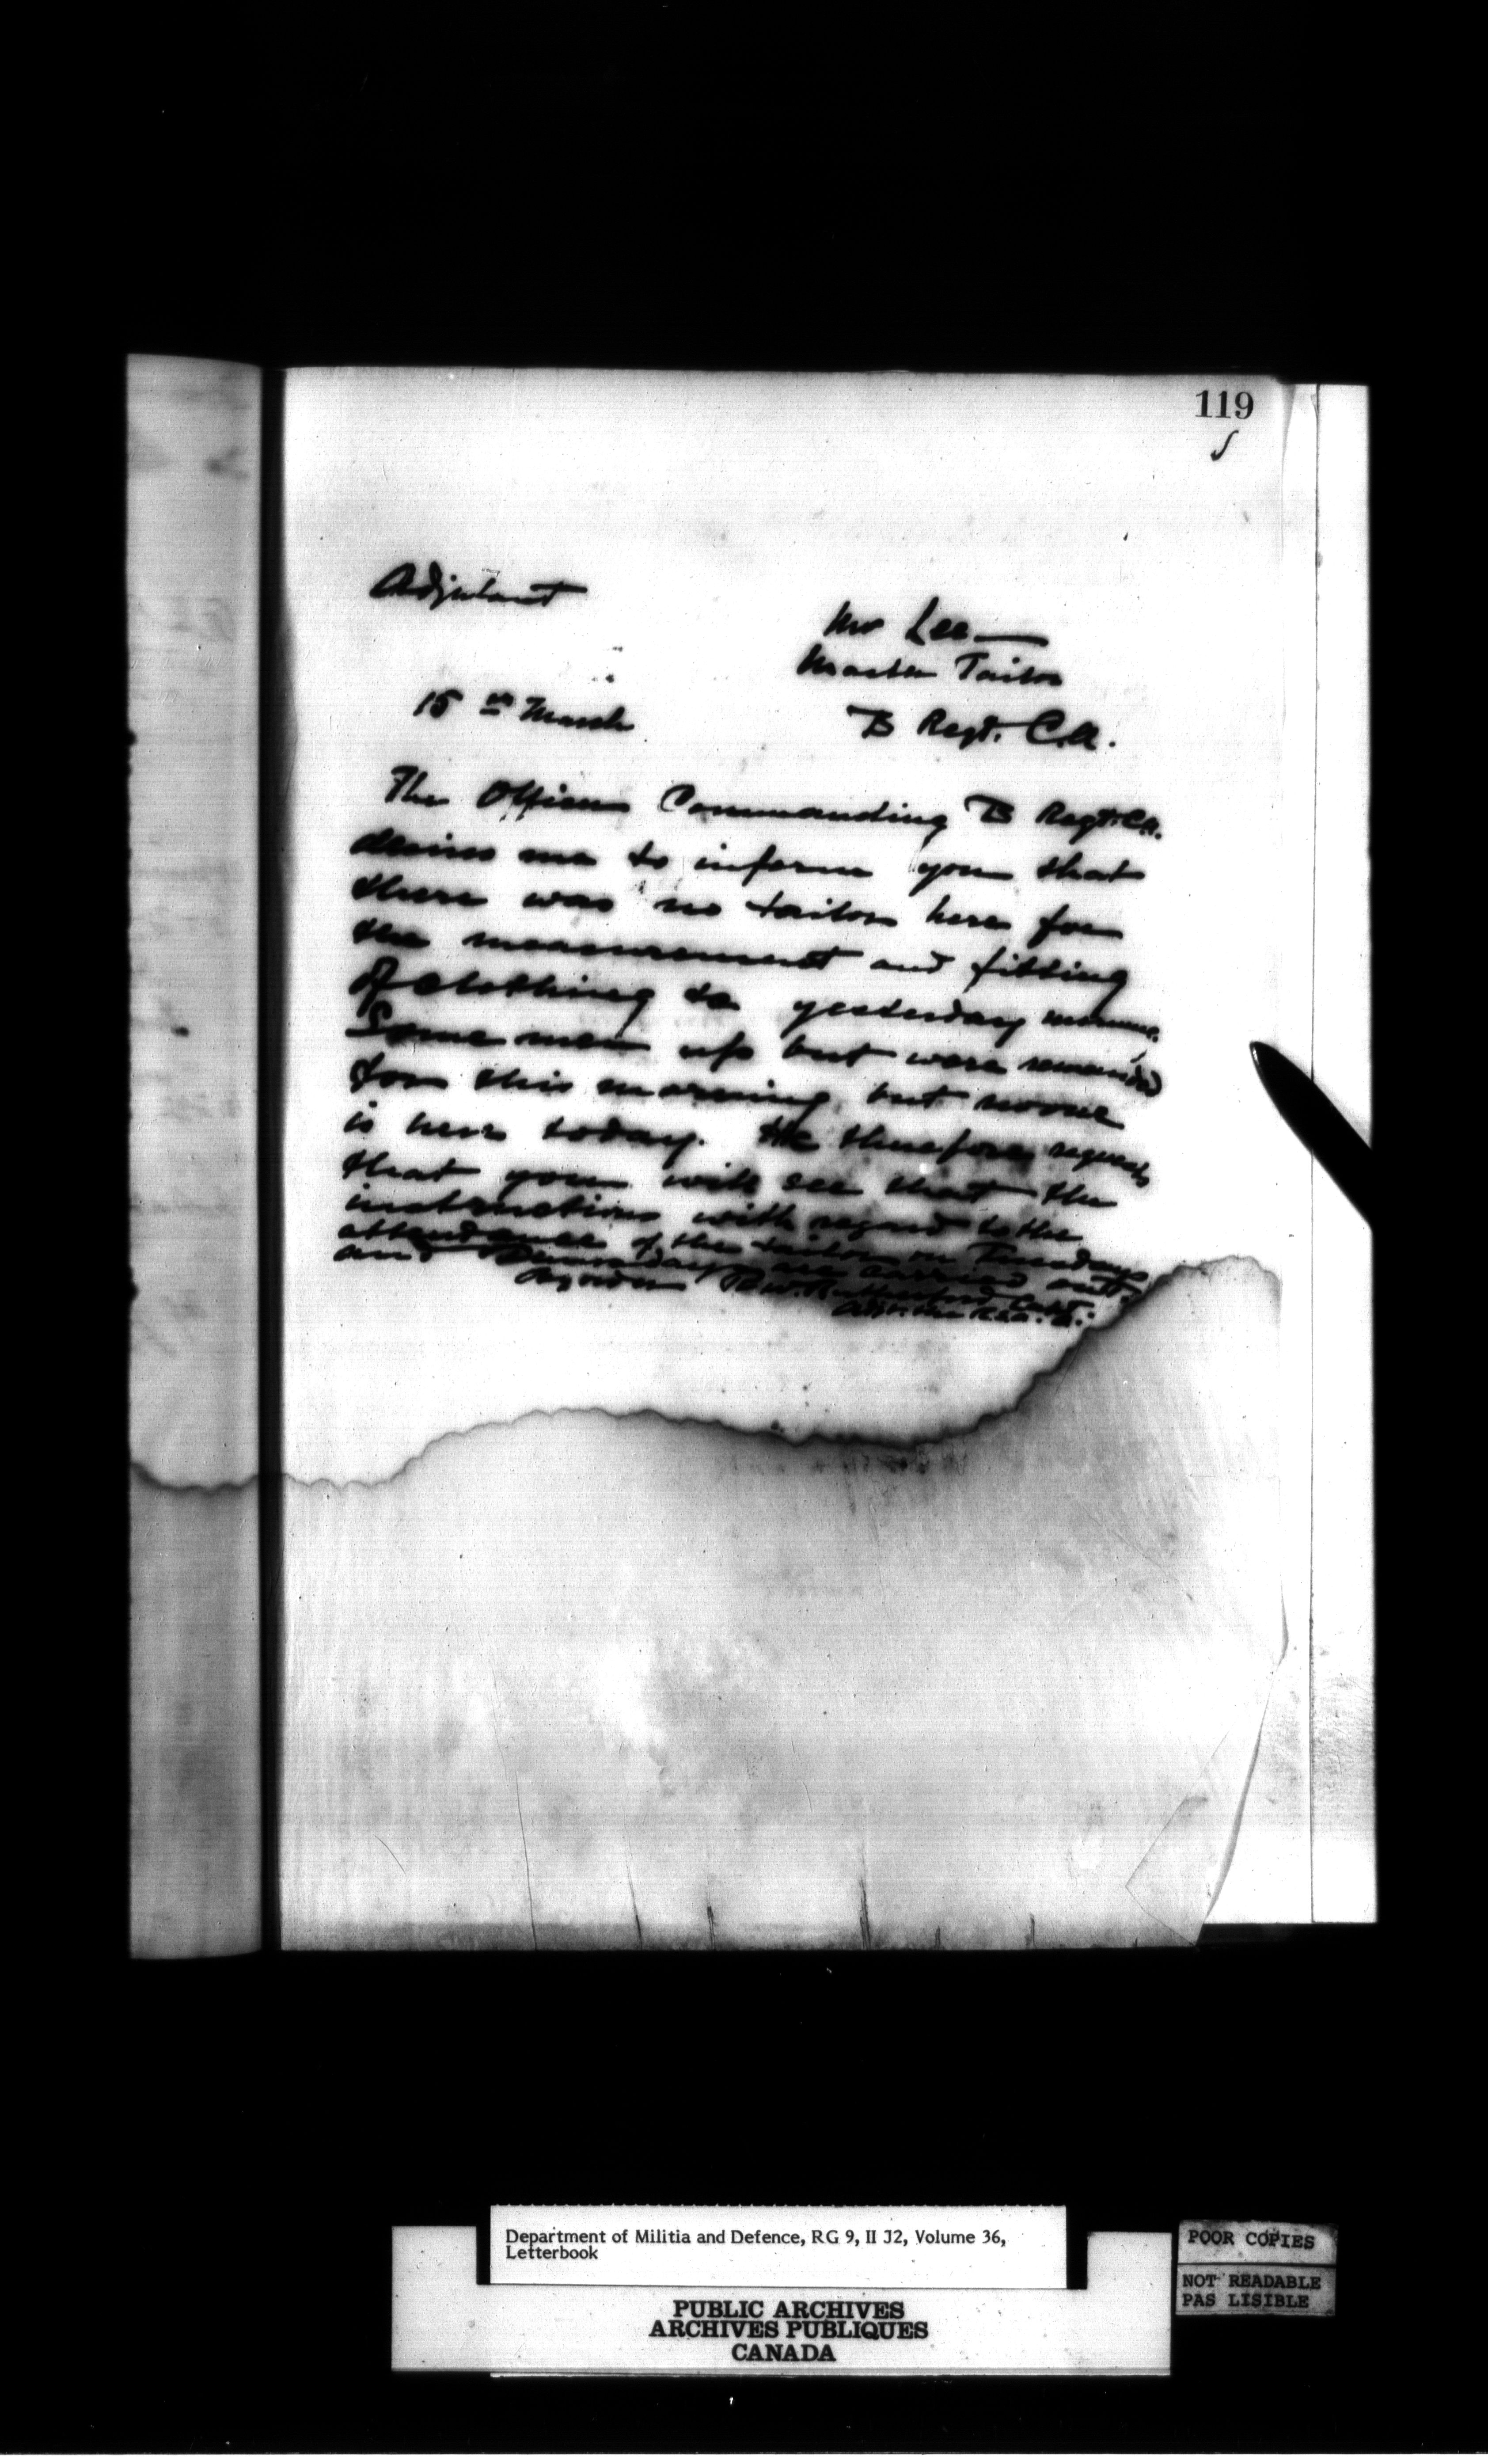 119
Adjutant
Mr Lee
Master Tailor
15th March
B Regt. C.A.
The Officer Commanding B Regt. C.A.
desires me to inform you that
there was no tailor here for
the measurement and fitting
of clothing to yesterday
Some men up but were remanded
for this morning but no one
is here today. He therefore requests
that you will see that the
instructions with regard to the
attendance of the tailor on Tuesdays
and are carried out
By order R.W. Rutherford Capt.
Department of Militia and Defence, RG 9, II J2, Volume 36,
Letterbook
PUBLIC ARCHIVES
ARCHIVES PUBLIQUES
CANADA
POOR COPIES
NOT READABLE
PAS LISIBLE